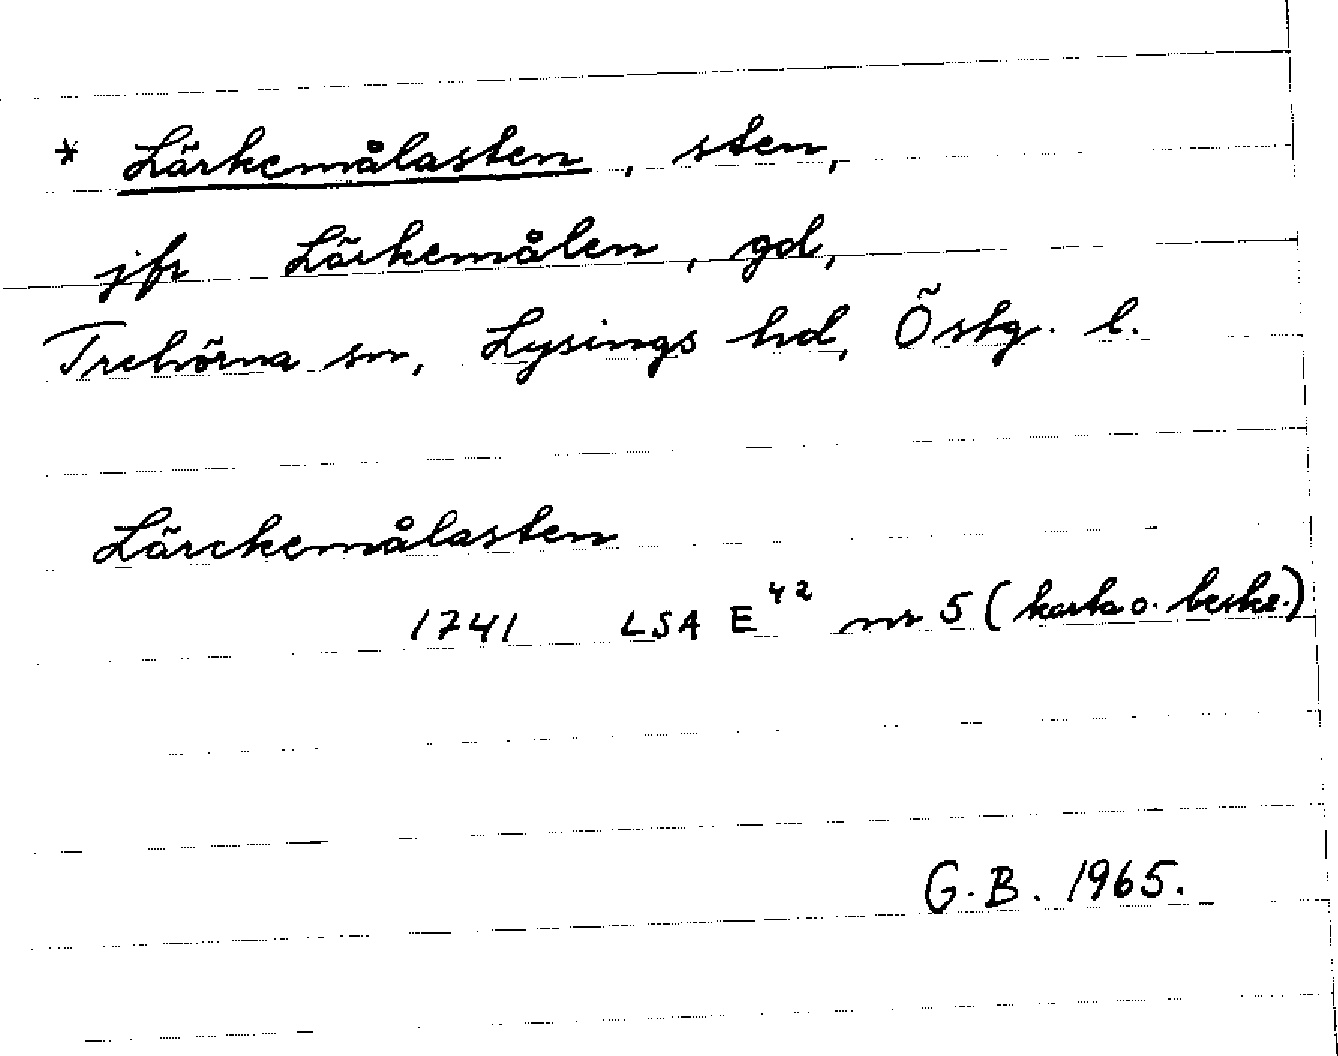 * Lärkemålasten, sten,
jfr Lärkemålen, gd,
Trehörna sn, Lysings hd, Östg. l.
Lärckemålasten
1741 LSA E42 nr 5 (karta o. beskr.)
G.B. 1965.